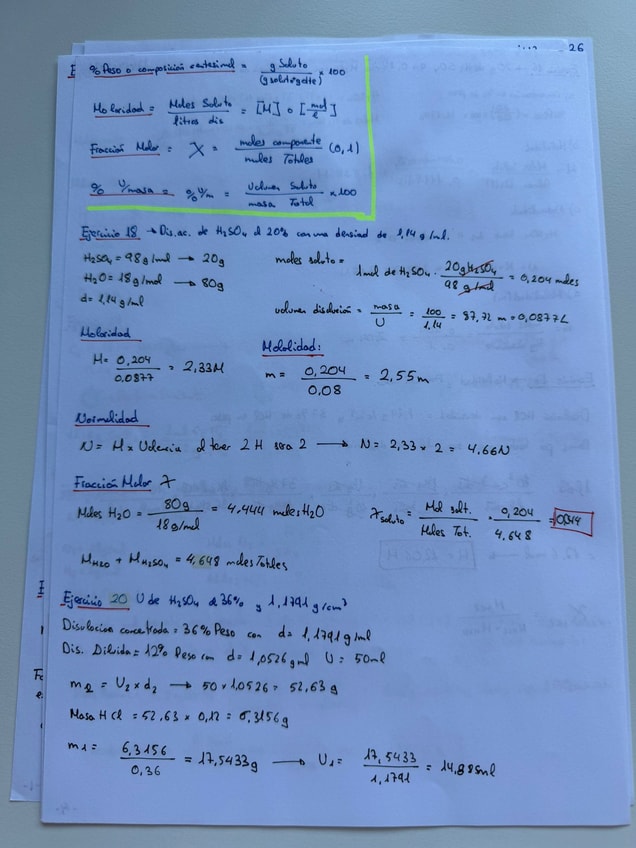 26
% Peso o composición centesimal = g Soluto / (g soluto+gdte) x 100
Molaridad = Moles Soluto / litros dis = [M] o [mol/l]
Fracción Molar = X = moles componente / moles Totales (0,1)
% V/masa = % V/m = Volumen Soluto / masa Total x 100
Ejercicio 18 → Dis. ac. de H₂SO₄ al 20% con una densiad de 1,14 g/ml.
H₂SO₄ = 98 g/mol → 20g
H₂O = 18 g/mol → 80g
d = 1,14 g/ml
moles soluto = 1 mol de H₂SO₄ · 20g H₂SO₄ / 98 g/mol = 0,204 moles
volumen disolución = masa / U = 100 / 1,14 = 87,72 m = 0,0877L
Molaridad
M = 0,204 / 0,0877 = 2,33M
Molalidad:
m = 0,204 / 0,08 = 2,55m
Normalidad
N = M x Valencia al tener 2 H sera 2 → N = 2,33 x 2 = 4,66N
Fracción Molar X
Moles H₂O = 80g / 18g/mol = 4,444 moles H₂O
X soluto = Mol solt. / Moles Tot. = 0,204 / 4,648 =
M H₂O + M H₂SO₄ = 4,648 moles Totales
Ejercicio 20 V de H₂SO₄ al 36% y 1,1791 g/cm³
Disolucion concetrada = 36% Peso con d = 1,1791 g/ml
Dis. Diluida = 12% Peso con d = 1,0526 g/ml V = 50ml
m₂ = V₂ x d₂ → 50 x 1,0526 = 52,63 g
Masa HCl = 52,63 x 0,12 = 6,3156g
m₁ = 6,3156 / 0,36 = 17,5433g → V₁ = 17,5433 / 1,1791 = 14,88ml